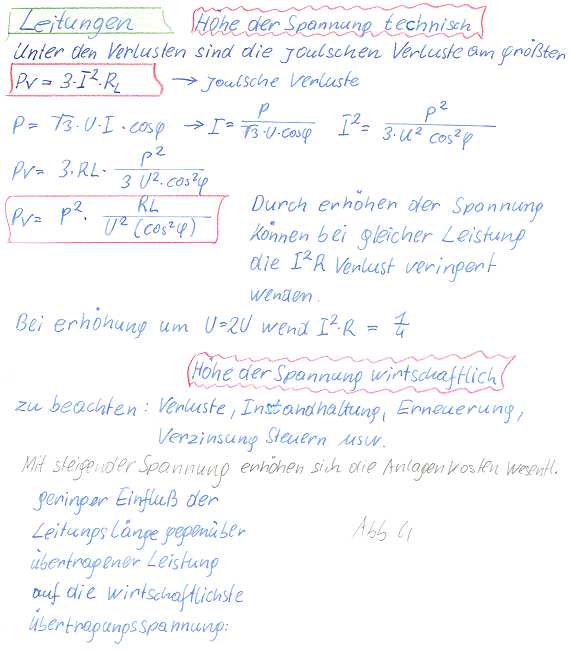 Leitungen Höhe der Spannung technisch
Unter den Verlusten sind die joulschen Verluste am größten
Pv = 3·I²·R_L → joulsche Verluste
P = √3·U·I·cosφ → I = P / (√3·U·cosφ) I² = P² / (3·U² cos²φ)
Pv = 3·RL· P² / (3 U²·cos²φ)
Pv = P² · RL / (U² (cos²φ))
Durch erhöhen der Spannung
können bei gleicher Leistung
die I²R Verlust veringert
werden.
Bei erhöhung um U=2U werd I²·R = 1/4
Höhe der Spannung wirtschaftlich
zu beachten: Verluste, Instandhaltung, Erneuerung,
Verzinsung Steuern usw.
Mit steigender Spannung erhöhen sich die Anlagenkosten wesentl.
geringer Einfluß der
Leitungslänge gegenüber
übertragener Leistung
auf die wirtschaftlichste
Übertragungsspannung:
Abb